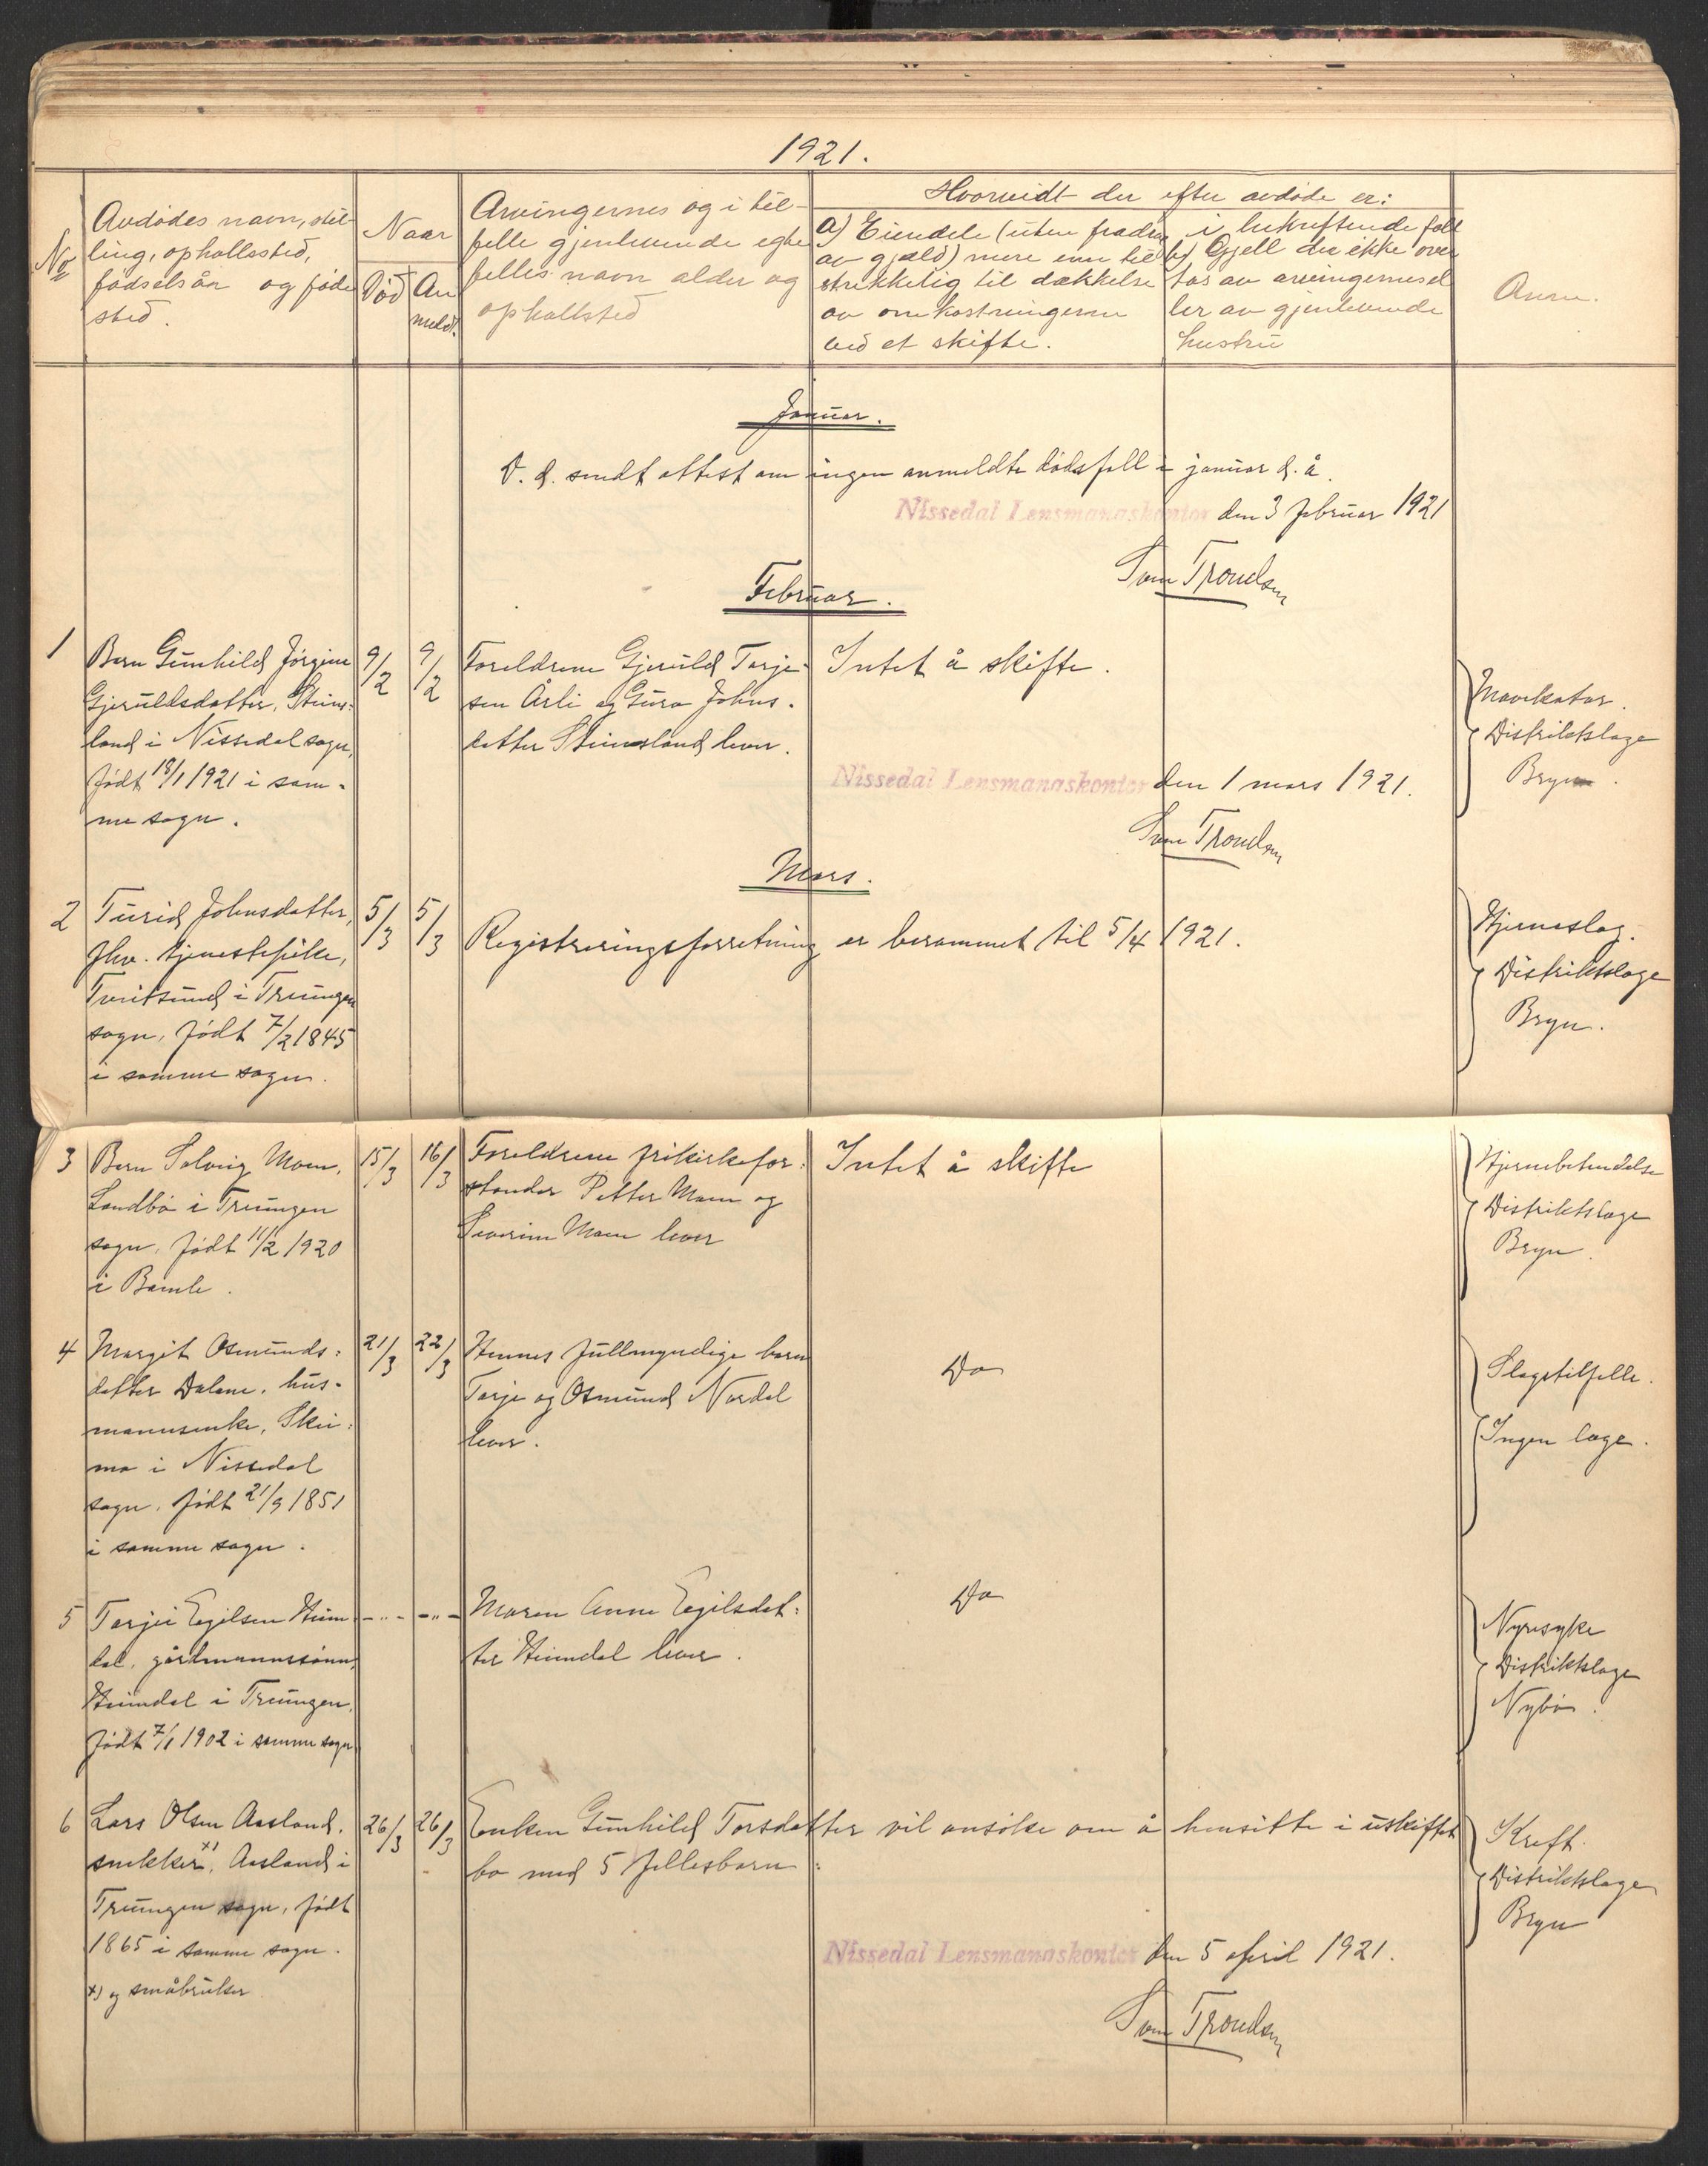 1921.
No
Avdødes navn, stil-
ling, opholdssted,
fødselsår og føde
sted.
Naar
Død
An
meldt.
Arvingernes og i til-
felle gjenlevende egte
felles navn alder og
opholdsted
Hvorvidt der efter avdøde er:
a) Eiendele (uten fradrag
av gjæld) mere enn til
strekkelig til dækkelse
av omkostningerne
ved et skifte.
i bekreftende fall
b) Gjell der ikke over
tas av arvingerne el
ler av gjenlevende
hustru
Anm.
Januar.
D. d. sendt attest om ingen anmeldte dødsfall i januar d. å.
Nissedal Lensmanaskontor den 3 februar 1921
Sven Trondsen
Februar.
1
Barn Gunhild Jørgine
Gjeruldsdatter, Steins-
land i Nissedal sogn,
født 18/1 1921 i sam-
me sogn.
9/2
9/2
Foreldrene Gjeruld Tarje-
sen Årli og Guro Johns-
datter Steinsland lever.
Intet å skifte.
Distriktslæge
Bryn.
Nissedal Lensmanaskontor den 1 mars 1921.
Sven Trondsen
Mars.
2
Turid Johnsdatter,
fhv. tjenestepike,
Tveitsund i Treungen
sogn, født 7/2 1845
i samme sogn.
5/3
5/3
Registreringsforretning er berammet til 5/4 1921.
Hjerneslag.
Distriktslæge
Bryn.
3
Barn Solveig Moen,
Sandbø i Treungen
sogn, født 11/2 1920
i Bamle.
15/3
16/3
Foreldrene frikirkefor-
stander Petter Moen og
Severine Moen lever
Intet å skifte
Hjernebetendelse
Distriktslæge
Bryn.
4
Margit Osmunds-
datter Dalene, hus-
mannsenke, Skei-
mo i Nissedal
sogn, født 21/9 1851
i samme sogn.
21/3
22/3
Hennes fullmyndige barn
Tarje og Osmund Nordal
lever.
Do
Slagtilfelle.
Ingen læge.
5
Tarjei Egilsen Heim
dal, gårdmannssønn,
Heimdal i Treungen,
født 7/1 1902 i samme sogn
-"-
-"-
Maren Anne Egilsdat-
ter Heimdal lever.
Do
Nyresyke
Distriktslæge
Nybø.
6
Lars Olsen Aasland,
snekker x), Aasland i
Treungen sogn, født
1865 i samme sogn.
x) og småbruker
26/3
26/3
Enken Gunhild Torsdatter vil ansøke om å hensitte i uskiftet
bo med 5 fellesbarn
Kreft.
Distriktslæge
Bryn
Nissedal Lensmanaskontor den 5 april 1921.
Sven Trondsen